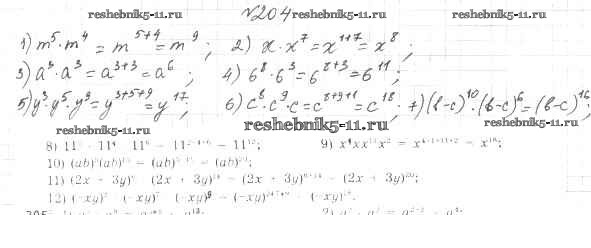 reshebnik5-11.ru №204 reshebnik5-11.ru
1) m⁵·m⁴ = m⁵⁺⁴ = m⁹; 2) x·x⁷ = x¹⁺⁷ = x⁸;
3) a³·a³ = a³⁺³ = a⁶; 4) 6⁸·6³ = 6⁸⁺³ = 6¹¹;
5) y³·y⁵·y⁹ = y³⁺⁵⁺⁹ = y¹⁷; 6) c⁸·c⁹·c = c⁸⁺⁹⁺¹ = c¹⁸; 7) (b-c)¹⁰·(b-c)⁶ = (b-c)¹⁶;
reshebnik5-11.ru
reshebnik5-11.ru
8) 11² 11⁴ 11⁶ = 11²⁺⁴⁺⁶ = 11¹²; 9) x⁴xx¹¹x² = x⁴⁺¹⁺¹¹⁺² = x¹⁸;
10) (ab)⁵(ab)¹⁵ = (ab)⁵⁺¹⁵ = (ab)²⁰;
11) (2x + 3y)⁶ (2x + 3y)¹⁴ = (2x + 3y)⁶⁺¹⁴ = (2x + 3y)²⁰;
12) (−xy)² (−xy)⁷ (−xy)⁹ = (−xy)²⁺⁷⁺⁹ = (−xy)¹⁸.